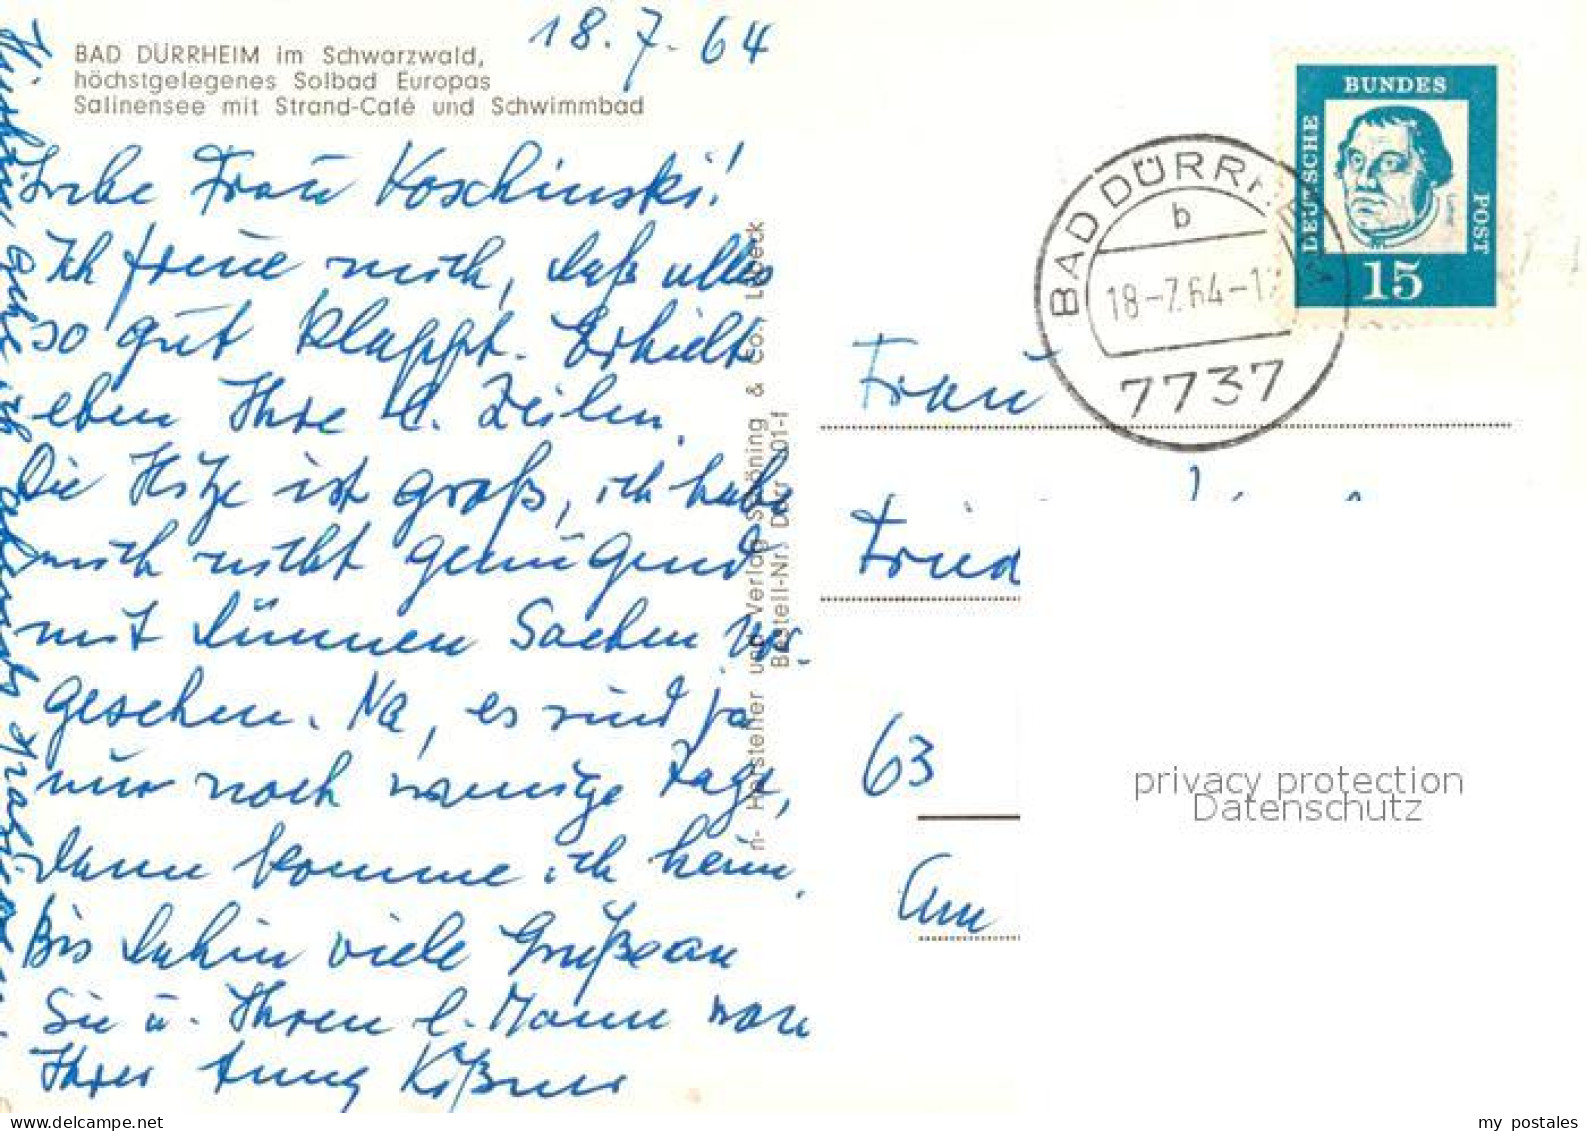 18.7.64
BAD DÜRRHEIM im Schwarzwald,
höchstgelegenes Solbad Europas
Salinensee mit Strand-Café und Schwimmbad
Liebe Frau Koschinski!
Ich freue mich, daß alles
so gut klappt. Erhielt
eben Ihre l. Zeilen.
Die Hitze ist groß, ich habe
mich nicht genügend
mit dünnen Sachen ver-
gesehen. Na, es sind ja
nur noch wenige Tage,
dann komme ich heim.
Bis dahin viele Grüße an
Sie u. Ihren l. Mann von
Ihrer
Hersteller und Verlag Schöning & Co., Lübeck
Bestell-Nr. Dürr
DEUTSCHE
BUNDES
POST
Luther
15
BAD DÜRRHEIM
b
18-7.64-1
7737
Frau
Fried
63
Am
privacy protection
Datenschutz
www.delcampe.net
my postales